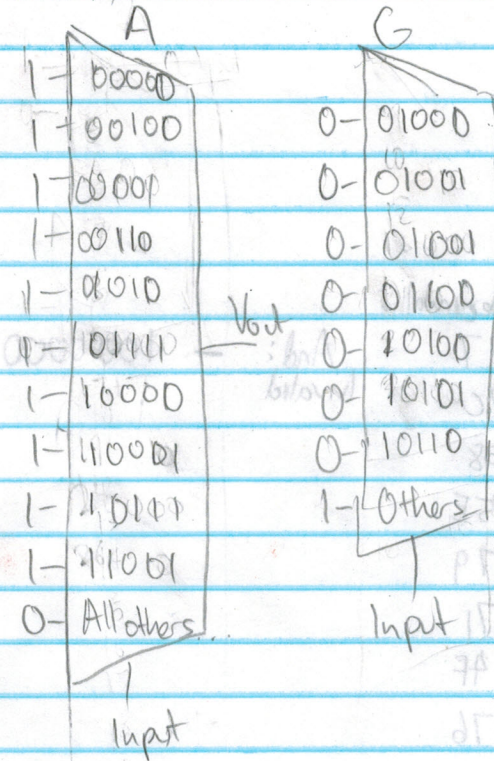 A
1- 00000
1- 00100
1- 00001
1- 00110
1- 01010
1- 01111
1- 10000
1- 10001
1- 10111
1- 11001
0- All others
Vout
Input
G
0- 01000
0- 01001
0- 01001
0- 01100
0- 10100
0- 10101
0- 10110
1- Others
Input